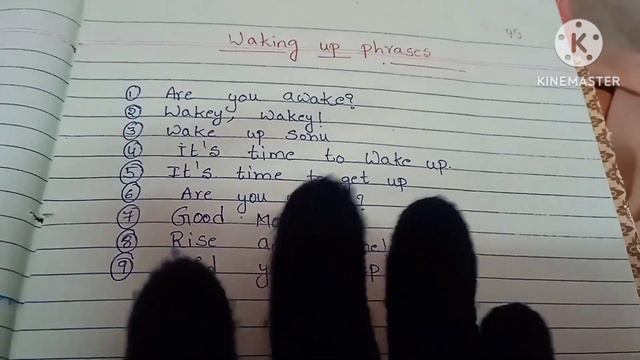 Waking up phrases
KINEMASTER
① Are you awake?
② Wakey, wakey!
③ Wake up Sonu
④ it's time to Wake up.
⑤ It's time to get up
⑥ Are you ?
⑦ Good
⑧ Rise
⑨